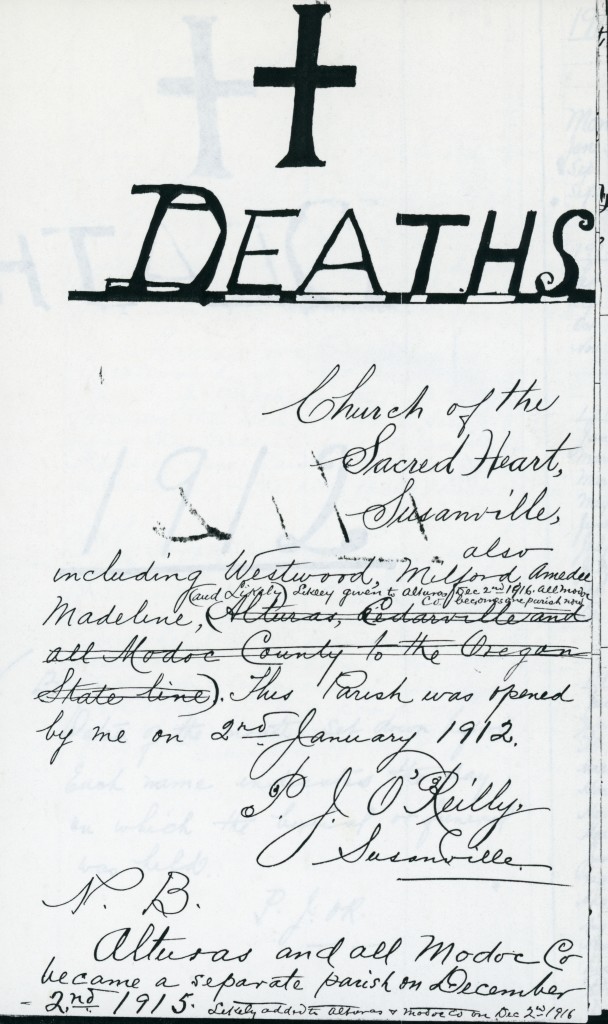 DEATHS
Church of the
Sacred Heart,
Susanville,
also
including Westwood, Milford Amedee
(and Likely) Likely given to alturas Dec 2nd 1916. all Modoc
Co. becomes one parish now
Madeline, (Alturas, Cedarville and
all Modoc County to the Oregon
State line). This Parish was opened
by me on 2nd January 1912.
P. J. O'Reilly,
Susanville.
N. B.
Alturas and all Modoc Co
became a separate parish on December
2nd 1915. Likely added to alturas & modoc Co on Dec 2nd 1916
1912